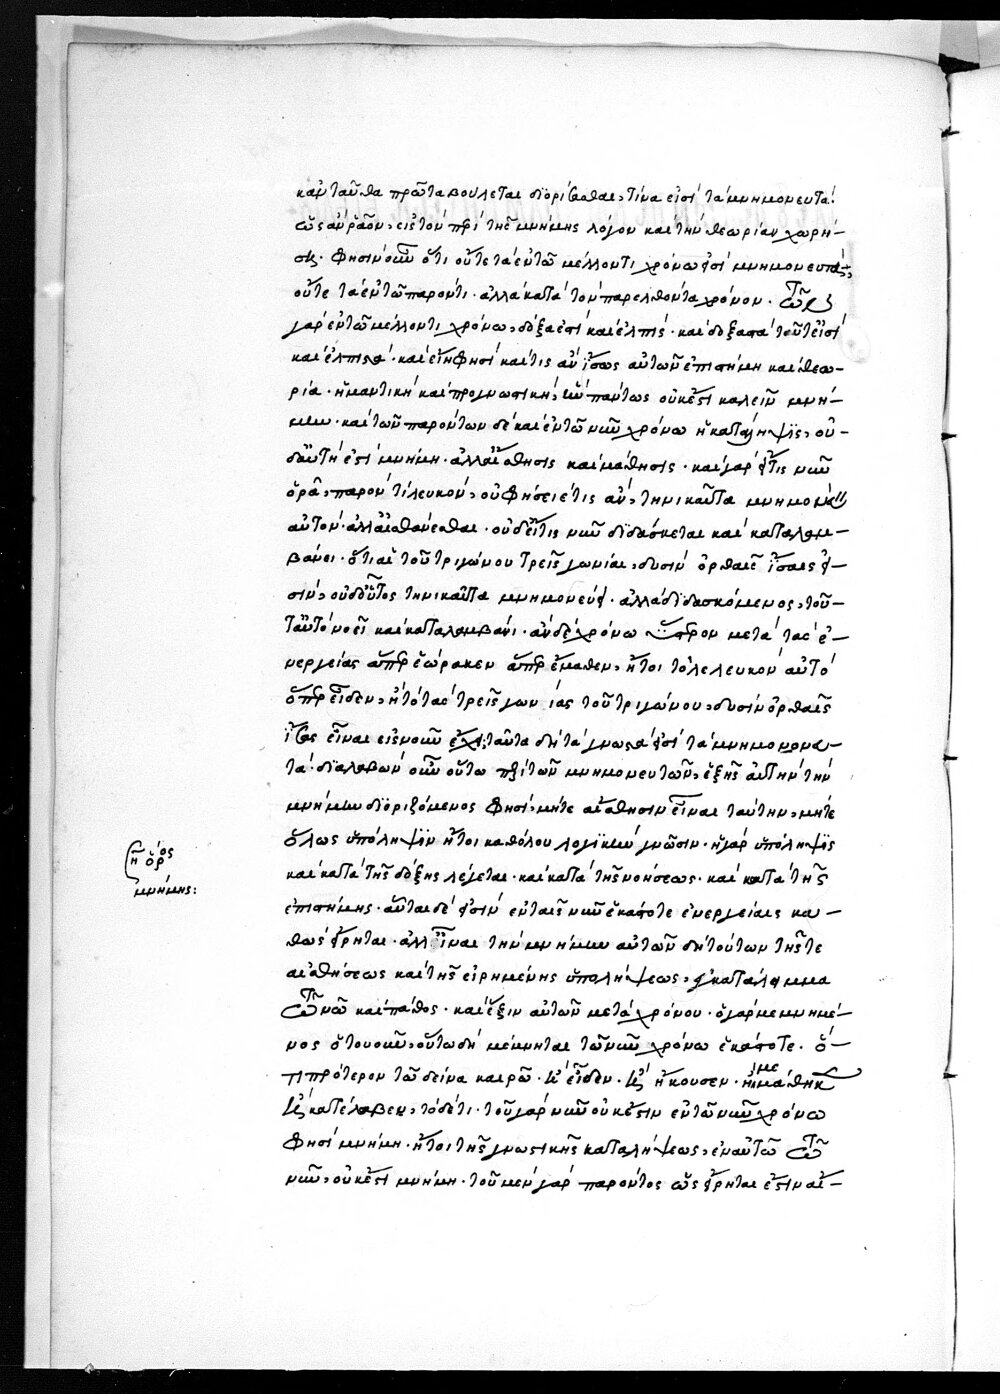 κἀνταῦθα πρῶτα βούλεται διορίσασθαι, τίνα εἰσὶ τὰ μνημονευτά.
ὡς ἂν ῥᾷον, εἰς τὸν περὶ τῆς μνήμης λόγον καὶ τὴν θεωρίαν χωρή-
σῃ. φησὶν οὖν ὅτι οὔτε τὰ ἐν τῷ μέλλοντι χρόνῳ εἰσὶ μνημονευτά,
οὔτε τὰ ἐν τῷ παρόντι. ἀλλὰ κατὰ τὸν παρελθόντα χρόνον. τῶν
γὰρ ἐν τῷ μέλλοντι χρόνῳ, δόξα ἐστὶ καὶ ἐλπίς. καὶ δοξαστὰ τοῦτ' εἰσὶ
καὶ ἐλπιστά. καὶ εἴη φησὶ καί τις ἂν ἴσως αὐτῶν ἐπιστήμη καὶ θεω-
ρία. ἡ μαντικὴ καὶ προγνωστική, ἣν πάντως οὐκ ἔστι καλεῖν μνή-
μην. καὶ τῶν παρόντων δὲ καὶ ἐν τῷ νῦν χρόνῳ ἡ κατάληψις, οὐ-
δ' αὐτή ἐστι μνήμη. ἀλλ' αἴσθησις καὶ μάθησις. καὶ γὰρ εἴ τις νῦν
ὁρᾷ, παρόν τι λευκόν, οὐ φήσειέ τις ἄν, τηνικαῦτα μνημονεύειν
αὐτόν. ἀλλ' αἰσθάνεσθαι. οὐδ' εἴ τις νῦν διδάσκεται καὶ καταλαμ-
βάνει. ὅτι αἱ τοῦ τριγώνου τρεῖς γωνίαι, δυσὶν ὀρθαῖς ἴσαι εἰ-
σίν, οὐδ' οὗτος τηνικαῦτα μνημονεύει. ἀλλὰ διδασκόμενος, τοῦ-
τ' αὐτὸ νοεῖ καὶ καταλαμβάνει. ἂν δὲ χρόνῳ ὕστερον μετὰ τὰς ἐ-
νεργείας ἅπερ ἑώρακεν ἅπερ ἔμαθεν, ἤτοι τὸ λελευκὸν αὐτὸ
ὅπερ εἶδεν, ἢ τὸ τὰς τρεῖς γωνίας τοῦ τριγώνου, δυσὶν ὀρθαῖς
ἴσας εἶναι εἰς νοῦν ἔχῃ, ταῦτα δὴ τὰ γνωστά εἰσι τὰ μνημονευ-
τά. διαλαβὼν οὖν οὕτω περὶ τῶν μνημονευτῶν, ἑξῆς αὐτὴν τὴν
μνήμην διοριζόμενος φησί, μήτε αἴσθησιν εἶναι ταύτην, μήτε
ὅλως ὑπόληψιν ἤτοι καθόλου λογικὴν γνῶσιν. ἡ γὰρ ὑπόληψις
καὶ κατὰ τῆς δόξης λέγεται. καὶ κατὰ τῆς νοήσεως. καὶ κατὰ τῆς
ἐπιστήμης. αὗται δέ εἰσιν ἐν ταῖς νῦν ἑκάστοτε ἐνεργείαις κα-
θὼς εἴρηται. ἀλλ' εἶναι τὴν μνήμην αὐτῶν δὴ τούτων τῆς τε
αἰσθήσεως καὶ τῆς εἰρημένης ὑπολήψεως, ἐγκατάλειμμα
τῷ νῷ καὶ πάθος. καὶ ἕξιν αὐτῶν μετὰ χρόνου. ὁ γὰρ μεμνημέ-
νος ὁτουοῦν, οὕτω δὴ μέμνηται τῷ νῦν χρόνῳ ἑκάστοτε. ὅ-
τι πρότερον τῷ δεῖνα καιρῷ. ἢ εἶδεν. ἢ ἤκουσεν. ἢ μεμάθηκεν
ἢ κατέλαβεν, τόδε τι. τοῦ γὰρ νῦν οὐκ ἔστιν ἐν τῷ νῦν χρόνῳ
φησὶ μνήμη. ἤτοι τῆς γνωστικῆς καταλήψεως, ἐν αὐτῷ τῷ
νῦν, οὐκ ἔστι μνήμη. τοῦ μὲν γὰρ παρόντος ὡς εἴρηται ἔστιν αἴ-
τίς ὁ ὅρος
μνήμης: